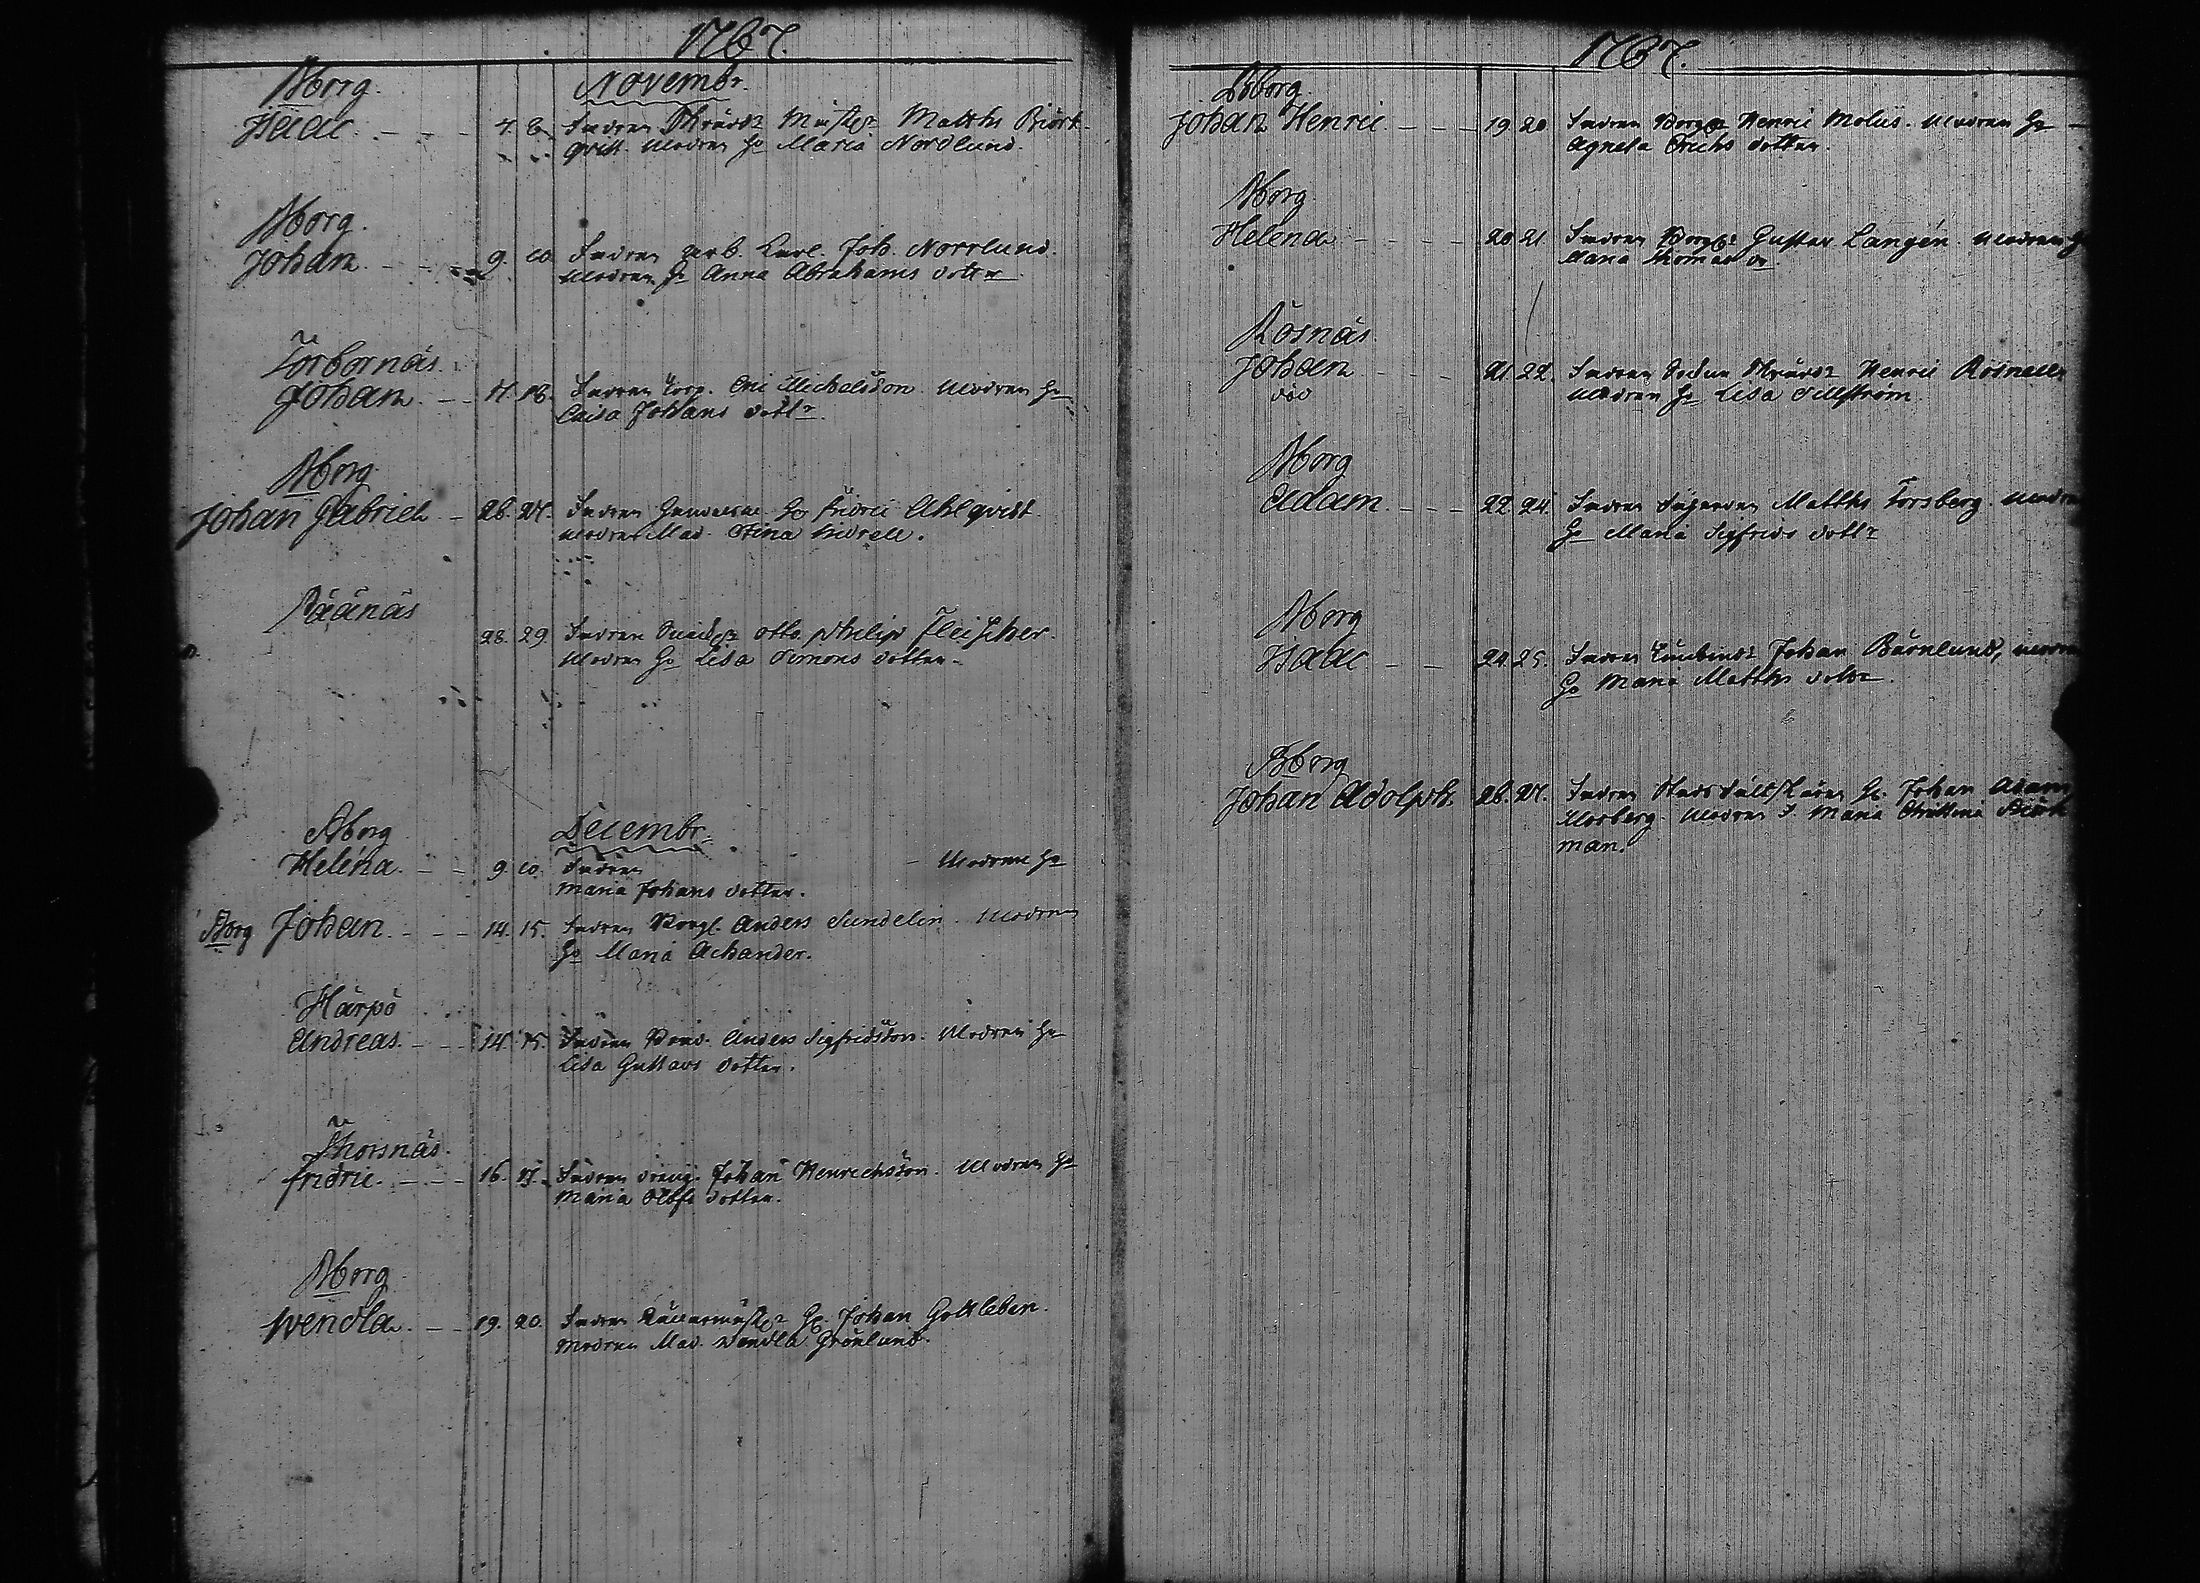 1767.
Novembr.
Bborg.
Isaac. 7. 8. Fadren Skräd:r Mäst:r Matths Björk-
qvist. Modren H:o Maria Nordlund.
Bborg.
Johan. 9. 10. Fadren Arb. Karl. Joh. Norrlund.
Modren H:o Anna Abrahams doter
Torbornäs.
Johan. 17. 18. Fadren Torp. Eric Michelsson. Modren H:o
Caisa Johans dott:r
Bborg
Johan Gabriel 26. 27. Fadren H:r Fridric Ahlqvist
Modren Mad. Stina
Räänäs
28. 29. Fadren Otto Philip Fleischer.
Modren H:o Lisa Simons dotter
Decembr.
Bborg
Helena. 9. 10. Fadren Modren H:o
Maria Johans dotter.
Bborg Johan. 14. 15. Fadren Borg. Anders Sundelin. Modren
H:o Maria Achander.
Härpö
Andreas. 14. 15. Fadren Bond. Anders Sigfridsson. Modren H:o
Lisa Gustavs dotter.
Thorsnäs.
Fridric. 16. 17. Fadren dreng. Johan Henrichsson. Modren H:o
Maria Olofs dotter.
Bborg
Wendla. 19. 20. Fadren H:r Johan Gottleben.
Modren Mad. Wendla Grönlund.
1767.
Bborg.
Johan Henric 19. 20. Fadren Borg:r Henric Moliis. Modren H:o
Agneta Erichs dotter.
Bborg.
Helena 20. 21. Fadren Borg:r Gustav Langén. Modren H:o
Maria Thomas d:r
Rosnäs.
Johan 21. 22. Fadren Sockne Skräd:r Henric Rosnell
död Modren H:o Lisa Sellström
Bborg
Adam. 22. 24. Fadren Matths Forsberg. Modren
H:o Maria Sigfrids dott:r
Bborg
Isaac 24. 25. Fadren Johan Barnlund, Modren
H:o Maria Matths dotter.
Bborg
Johan Adolph. 26. 27. Fadren H:r Johan Adam
Modren F. Maria Christina Björk
man.